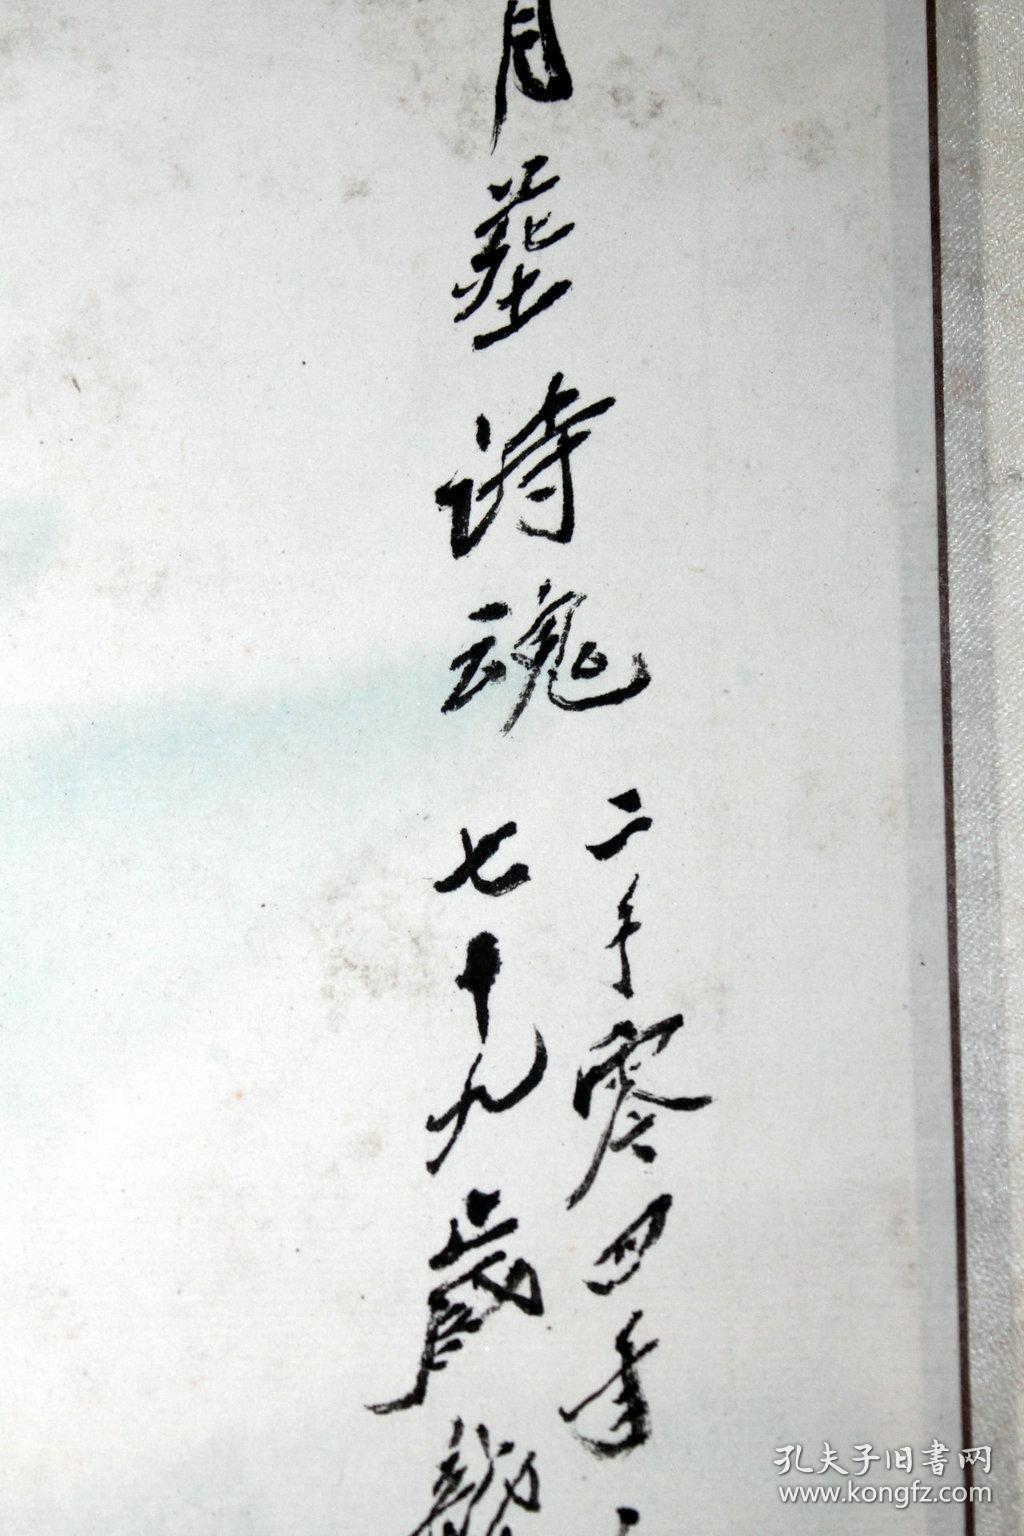 月葬诗魂
二千零四年
七十九歲
孔夫子旧書网
www.kongfz.com